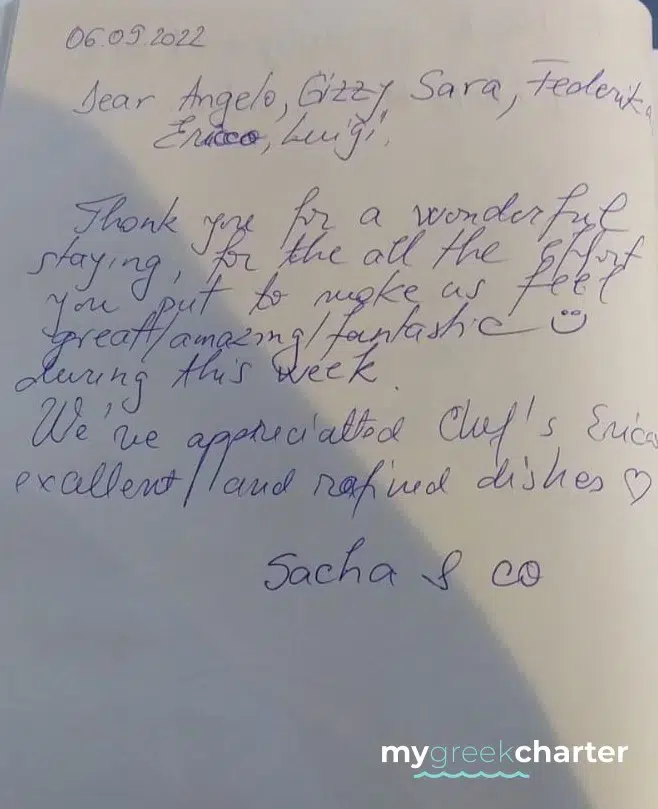 06.09.2022
Dear Angelo, Gizzy Sara, Federika
Ericco, Luigi,
Thank you for a wonderful
staying, for the all the effort
you put to make us feel
great/amazing/fantastic ☺
during this week.
We've appreciatted Chef's Erico
exallent/ and rafined dishes ♡
Sacha & co
mygreekcharter